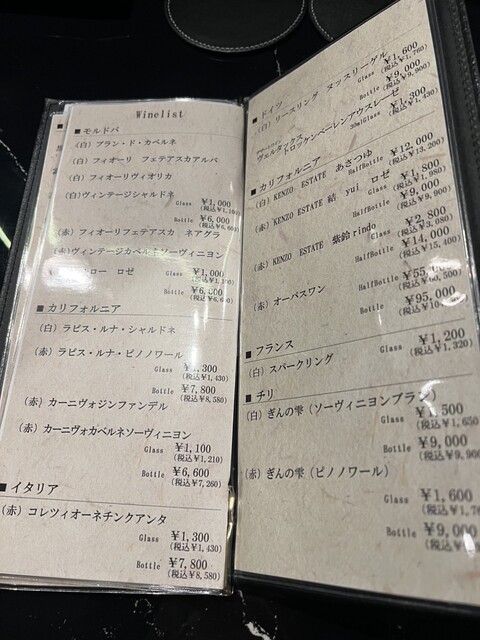 Winelist
■ モルドバ
(白) ブラン・ド・カベルネ
(白) フィオーリ フェテアスカアルバ
(白) フィオーリヴィオリカ
(白) ヴィンテージシャルドネ
Glass ￥1,000
Bottle ￥6,000
(赤) フィオーリフェテアスカ ネアグラ
(赤) ヴィンテージカベルネソーヴィニヨン
ロー ロゼ Glass ￥1,000
Bottle
■ カリフォルニア
(白) ラピス・ルナ・シャルドネ
(赤) ラピス・ルナ・ピノノワール
Glass ￥1,300
(税込￥1,430)
Bottle ￥7,800
(税込￥8,580)
(赤) カーニヴォジンファンデル
(赤) カーニヴォカベルネソーヴィニヨン
Glass ￥1,100
(税込￥1,210)
Bottle ￥6,600
(税込￥7,260)
■ イタリア
(赤) コレツィオーネチンクアンタ
Glass ￥1,300
(税込￥1,430)
Bottle ￥7,800
(税込￥8,580)
■ ドイツ
(白) リースリング ヌッスリーゲル
Glass ￥1,600
(税込￥1,760)
Bottle ￥9,000
(税込￥9,900)
ヴェルタックス
トロッケンベーレンアウスレーゼ
30mlGlass ￥1,300
(税込￥1,430)
■ カリフォルニア
(白) KENZO ESTATE あさつゆ
HalfBottle ￥12,000
(税込￥13,200)
(赤) KENZO ESTATE 結 yui ロゼ
Glass
HalfBottle ￥9,000
(税込￥9,900)
(赤) KENZO ESTATE 紫鈴 rindo
Glass ￥2,800
(税込￥3,080)
HalfBottle ￥14,000
(税込￥15,400)
(赤) オーパスワン
HalfBottle
Bottle ￥95,000
■ フランス
(白) スパークリング Glass ￥1,200
(税込￥1,320)
■ チリ
(白) ぎんの雫 (ソーヴィニヨンブラン)
Glass ￥1,500
(税込￥1,650
Bottle ￥9,000
(税込￥9,900
(赤) ぎんの雫 (ピノノワール)
Glass ￥1,600
Bottle ￥9,000